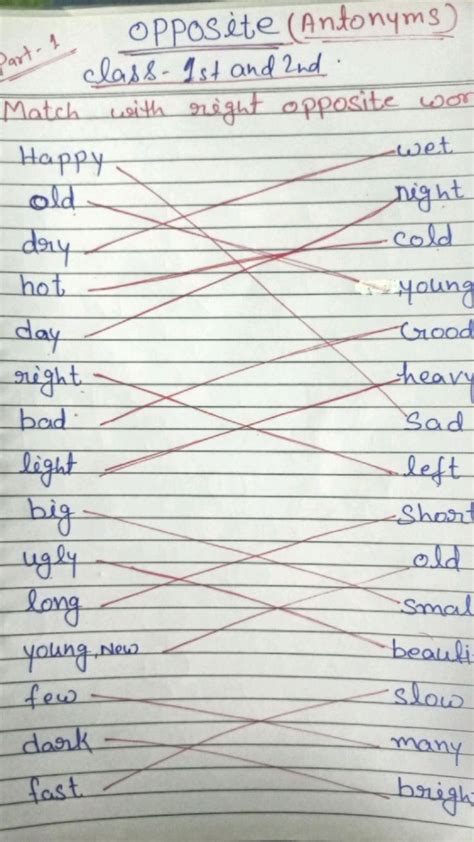 Part-1
OPPOSite (Antonyms)
class - 1st and 2nd.
Match with right opposite wor
Happy wet
old night
dry cold
hot young
day Good
right heavy
bad Sad
light left
big Short
ugly old
long smal
young, New beauti
few slow
dark many
fast brigh